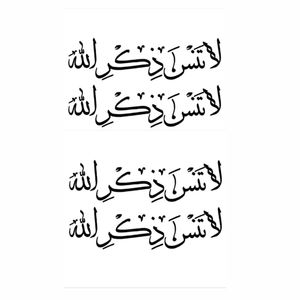 لا تَنْسَ ذِكْرِ الله
لا تَنْسَ ذِكْرِ الله
لا تَنْسَ ذِكْرِ الله
لا تَنْسَ ذِكْرِ الله